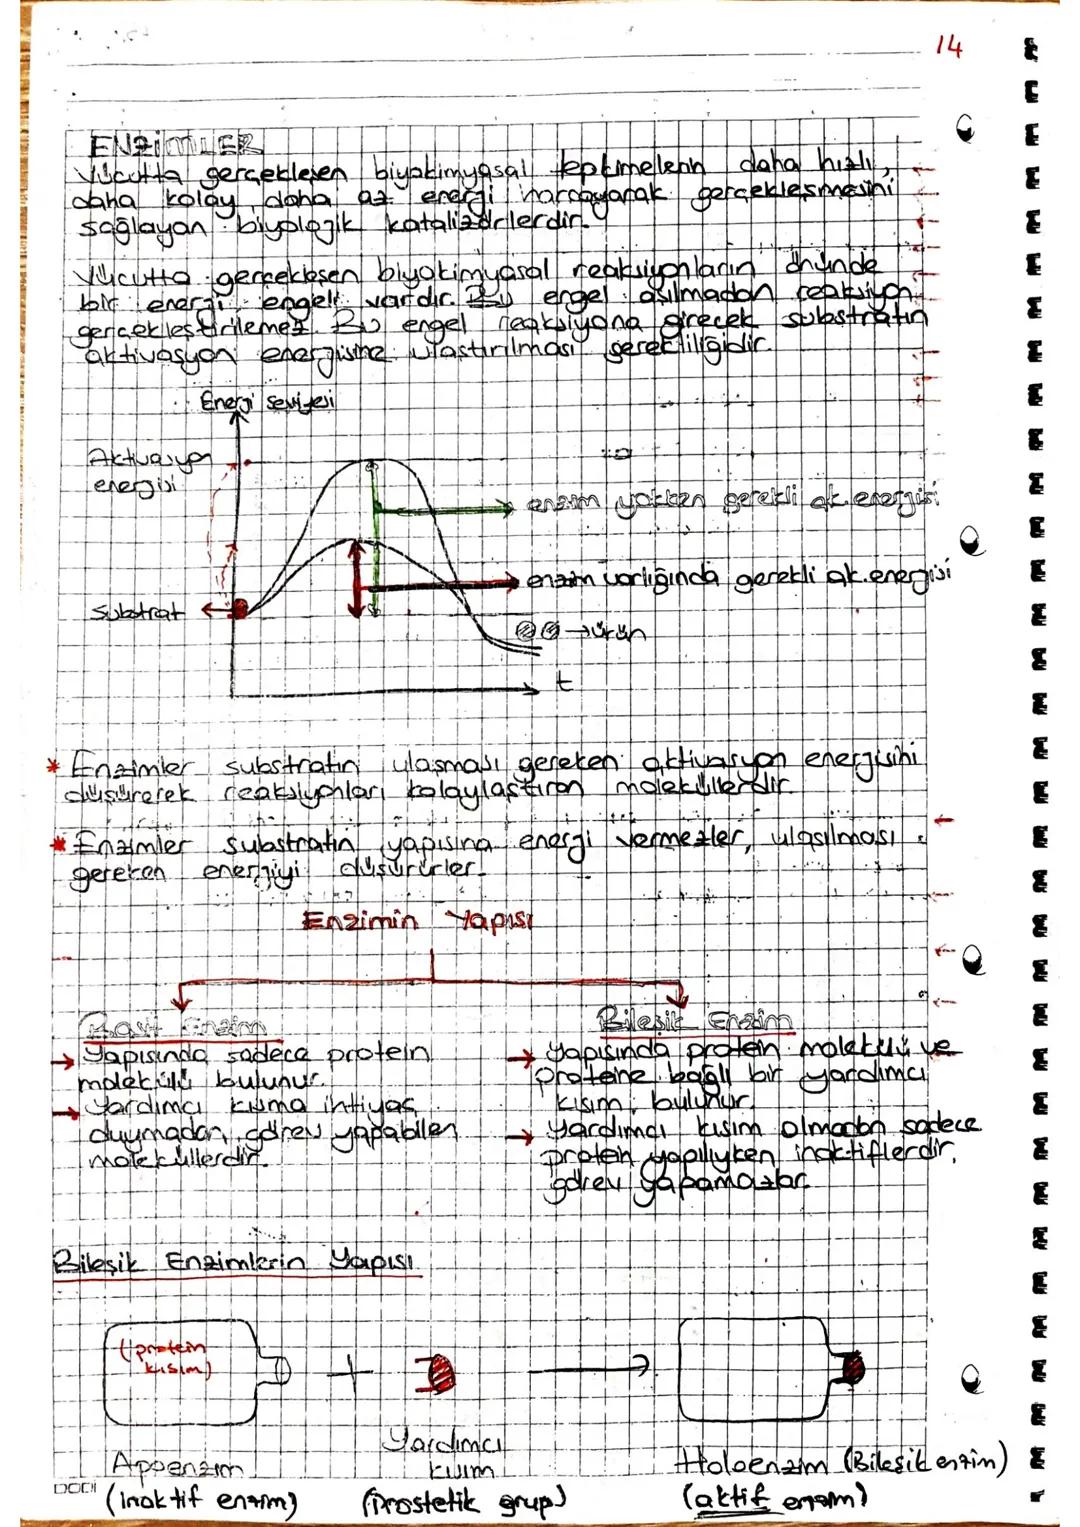 14
ENZİMLER
Vücutta gerçekleşen biyokimyasal tepkimelerin daha hızlı,
daha kolay, daha az enerji harcayarak gerçekleşmesini
sağlayan biyolojik katalizörlerdir.
Vücutta gerçekleşen biyokimyasal reaksiyonların önünde
bir enerji engeli vardır. Bu engel aşılmadan reaksiyon
gerçekleştirilemez. Bu engel reaksiyona girecek substratın
aktivasyon enerjisine ulaştırılması gerekliliğidir.
Enerji seviyesi
Aktivasyon
enerjisi
enzim yokken gerekli ak. enerjisi
enzim varlığında gerekli ak. enerjisi
Substrat
→ ürün
t
* Enzimler substratın ulaşması gereken aktivasyon enerjisini
düşürerek reaksiyonları kolaylaştıran moleküllerdir.
* Enzimler substratın yapısına enerji vermezler, ulaşılması
gereken enerjiyi düşürürler.
Enzimin Yapısı
Basit Enzim
→ Yapısında sadece protein
molekülü bulunur.
→ Yardımcı kısma ihtiyaç
duymadan görev yapabilen
moleküllerdir.
Bileşik Enzim
→ Yapısında protein molekülü ve
proteine bağlı bir yardımcı
kısım bulunur.
→ Yardımcı kısım olmadan sadece
protein yapılıyken inaktiflerdir,
görev yapamazlar.
Bileşik Enzimlerin Yapısı
(protein
kısım)
+
Apoenzim
(inaktif enzim)
Yardımcı
kısım
(Prostetik grup)
Holoenzim (Bileşik enzim)
(aktif enzim)